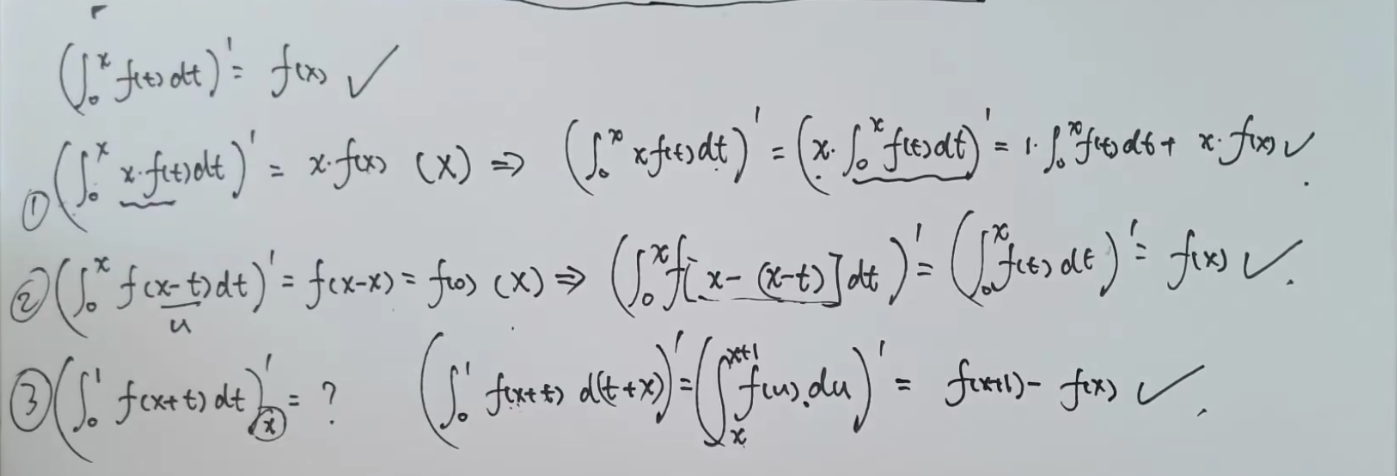 (∫₀ˣ f(t)dt)' = f(x) ✓
① (∫₀ˣ x·f(t)dt)' = x·f(x) (×) ⇒ (∫₀ˣ xf(t)dt)' = (x·∫₀ˣ f(t)dt)' = 1·∫₀ˣ f(t)dt + x·f(x) ✓.
② (∫₀ˣ f(x-t)dt)' = f(x-x) = f(0) (×) ⇒ (∫₀ˣ f[x-(x-t)]dt)' = (∫₀ˣ f(t)dt)' = f(x) ✓.
u
③ (∫₀¹ f(x+t)dt)'ₓ = ? (∫₀¹ f(x+t) d(t+x))' = (∫ₓˣ⁺¹ f(u).du)' = f(x+1) - f(x) ✓.